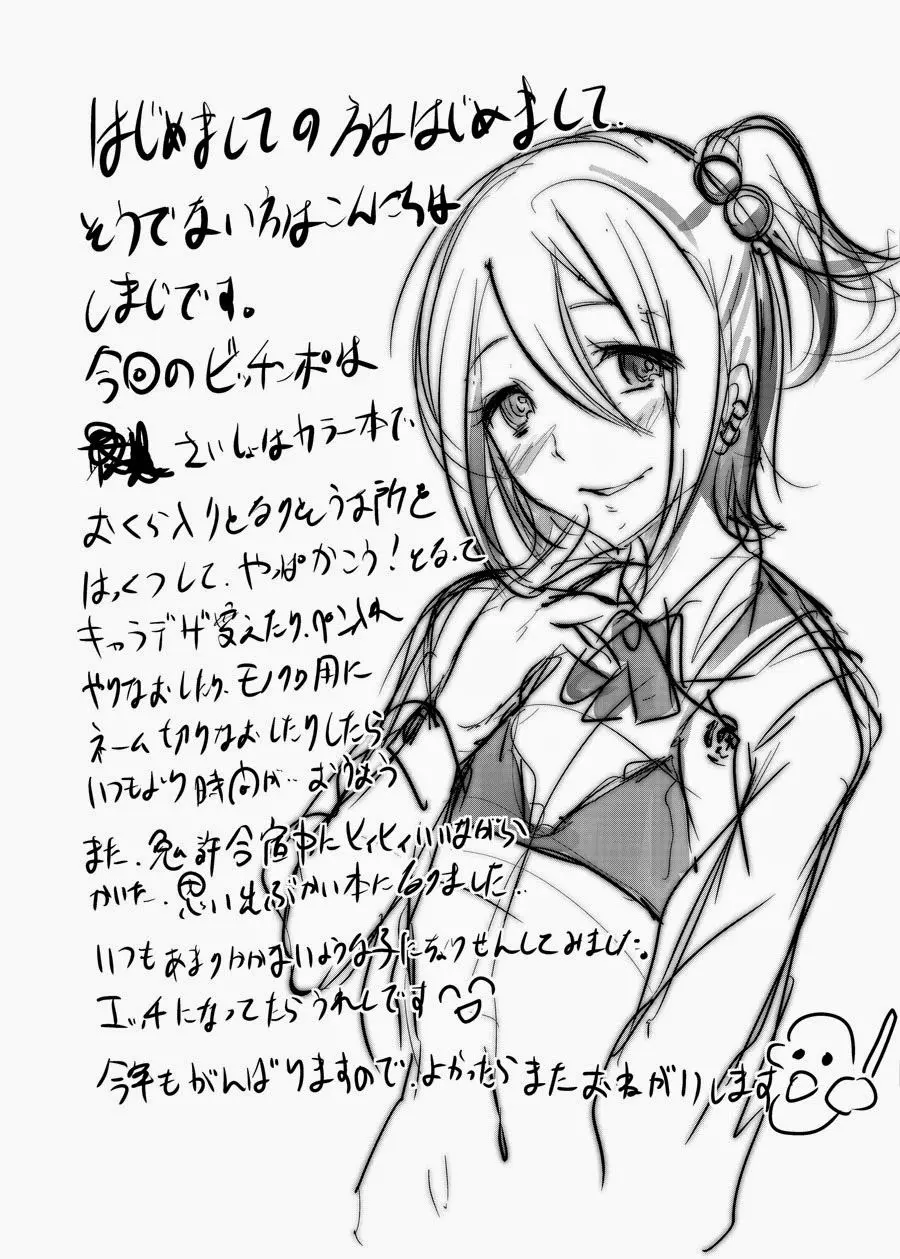 はじめましての方ははじめまして、
そうでない方はこんにちは
しまじです。
今回のビッチンポは
さいしょはカラー本で、
おくら入りとなりそうな所を
はっくつして、やっぱかこう!となって
キャラデザ変えたり、ペン入れ
やりなおしたり、モノクロ用に
ネーム切りなおしたりしたら
いつもより時間が…
また、免許合宿中にヒィヒィいいながら
かいた、思い出ぶかい本になりました…
いつもあまりかかないような子にちょうせんしてみました。
エッチになってたらうれしです
今年もがんばりますので、よかったらまたおねがいします